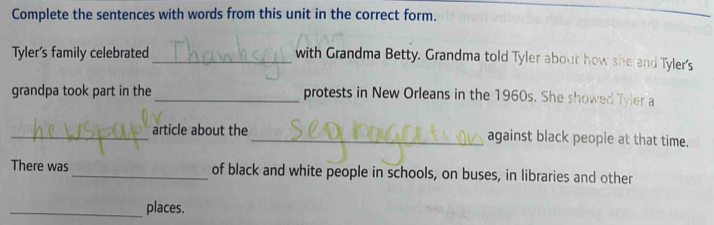 Complete the sentences with words from this unit in the correct form.
Tyler's family celebrated Thanksgiving with Grandma Betty. Grandma told Tyler about how she and Tyler's
grandpa took part in the ____ protests in New Orleans in the 1960s. She showed Tyler a
newspaper article about the segragation against black people at that time.
There was ____ of black and white people in schools, on buses, in libraries and other
____ places.